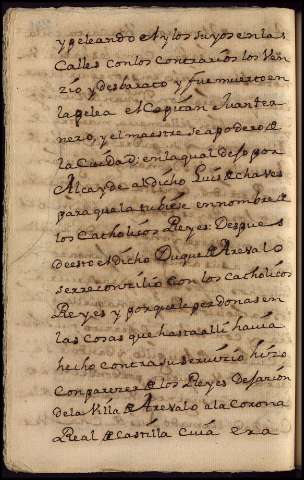 y peleando el y los suyos en las
Calles con los contrarios los ven
zio y desbarato y fue muerto en
la pelea el Capitan Juan
nero, y el maestre se apodero de
la Ciudad; en la qual dexo por
Alcayde al dicho Luis de Chaves
para que la tubiese en nombre de
los Catholicos Reyes. Despues
de esto el dicho Duque de Arevalo
se rreconzilio con los Catholicos
Reyes y porque le perdonasen
las cosas que hasta alli havia
hecho contra su servizio hizo
con parezer de los Reyes Desazion
de la Villa de Arevalo a la Corona
Real de Castilla cuia era